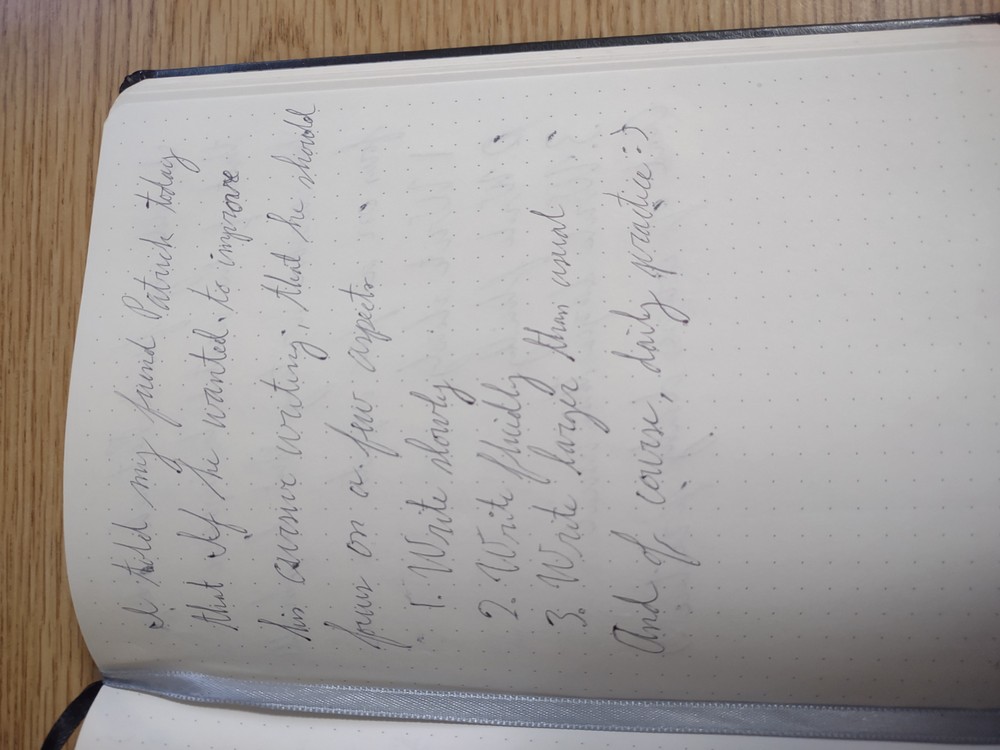 I told my friend Patrick today
that If he wanted to improve
his cursive writing, that he should
focus on a few aspects
1. Write slowly
2. Write fluidly
3. Write larger than usual
And of course, daily practice :)